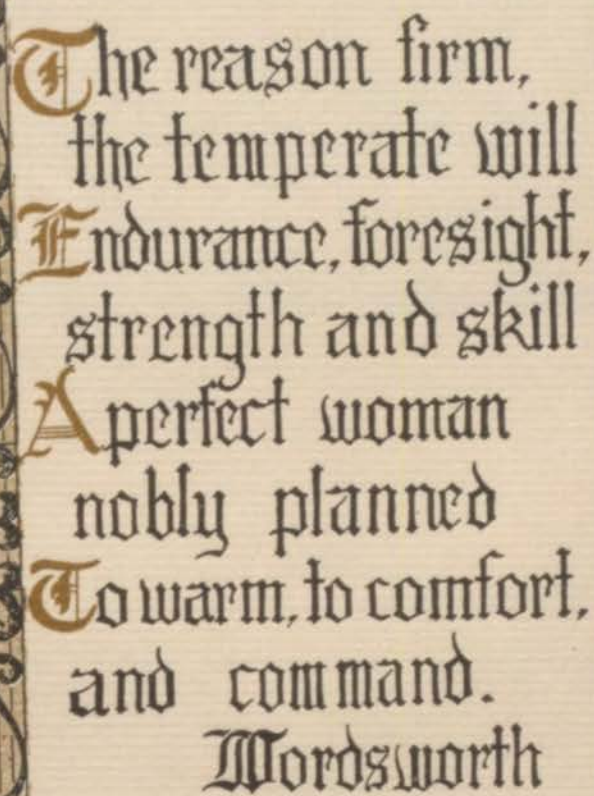 The reason firm,
the temperate will
Endurance, foresight,
strength and skill
A perfect woman
nobly planned
To warm, to comfort,
and command.
Wordsworth